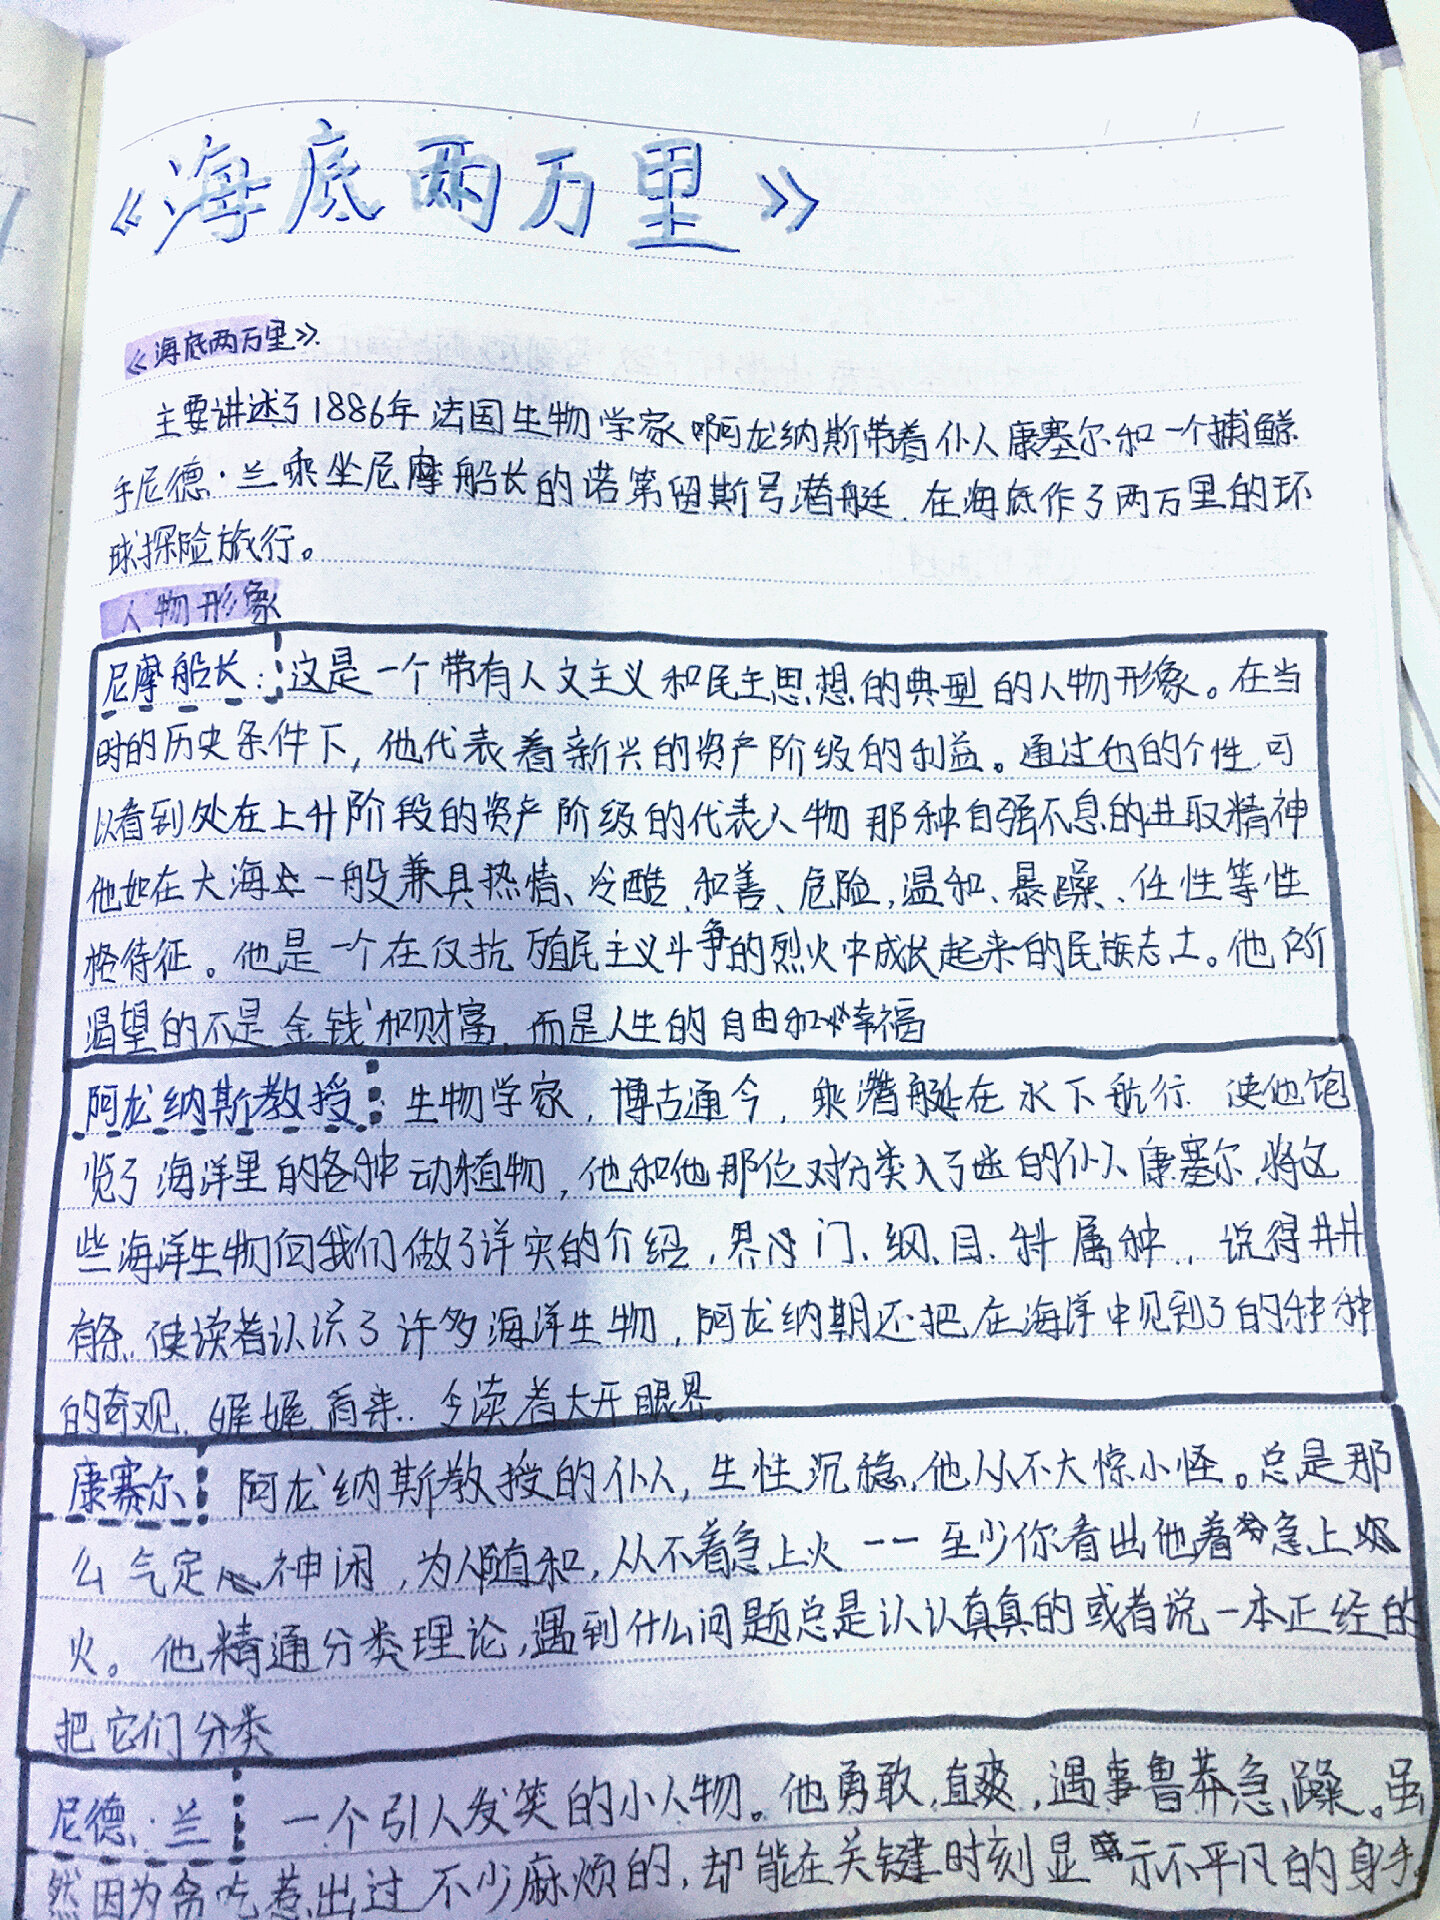 《海底两万里》
《海底两万里》
主要讲述了1886年法国生物学家啊阿龙纳斯带着仆人康塞尔和一个捕鲸
手尼德·兰乘坐尼摩船长的诺第留斯号潜艇,在海底作了两万里的环
球探险旅行。
人物形象
尼摩船长:这是一个带有人文主义和民主思想的典型的人物形象。在当
时的历史条件下,他代表着新兴的资产阶级的利益。通过他的个性,可
以看到处在上升阶段的资产阶级的代表人物那种自强不息的进取精神
他如在大海一般兼具热情、冷酷、和善、危险,温和、暴躁、任性等性
格待征。他是一个在反抗殖民主义斗争的烈火中成长起来的民族志士。他所
渴望的不是金钱和财富,而是人生的自由和幸福
阿龙纳斯教授:生物学家,博古通今,乘潜艇在水下航行 使他饱
览了海洋里的各种动植物,他和他那位对分类入了迷的仆人康塞尔,将这
些海洋生物向我们做了详实的介绍,界、门、纲、目、科属种,说得井井
有条、使读者认识了许多海洋生物,阿龙纳期还把在海洋中见到了的种种
的奇观,娓娓看来..令读者大开眼界。
康塞尔:阿龙纳斯教授的仆人,生性沉稳,他从不大惊小怪。总是那
么气定神闲,为人随和,从不着急上火——至少你看出他着急上
火。他精通分类理论,遇到什么问题总是认认真真的或者说一本正经的
把它们分类
尼德·兰:一个引人发笑的小人物。他勇敢,直爽,遇事鲁莽急躁。虽
然因为贪吃惹出过不少麻烦的,却能在关键时刻显示不平凡的身手。